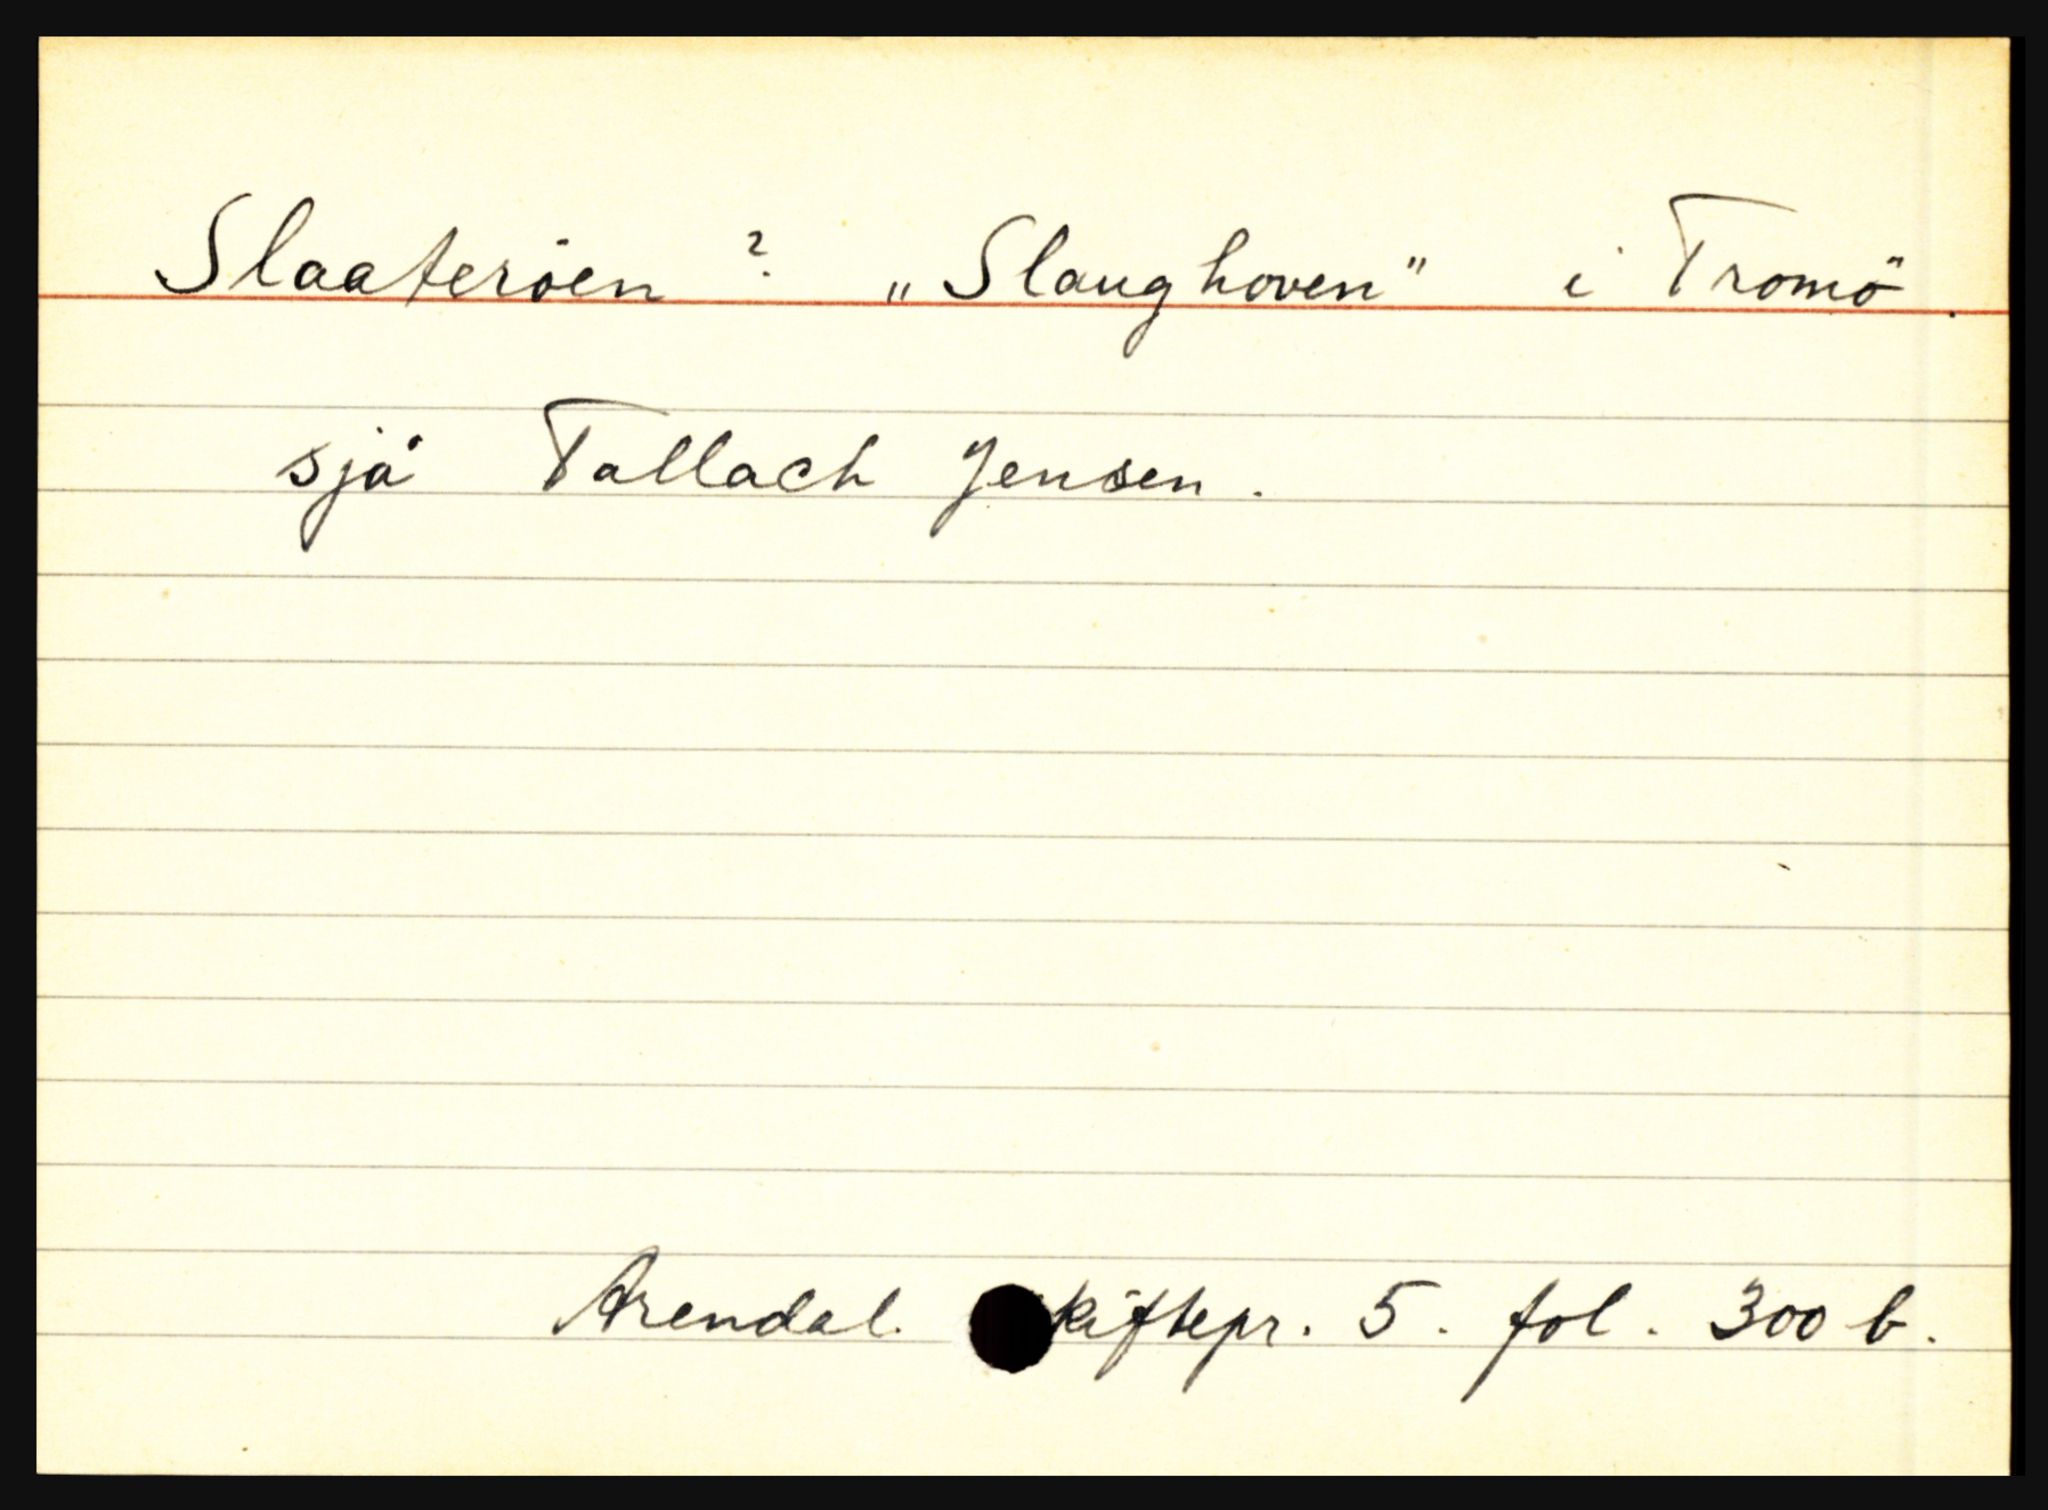 Slaateröen ? „Slaughoven" i Tromö.
sjå Tallach Jensen.
Arendal. kiftepr. 5. fol. 300 b.